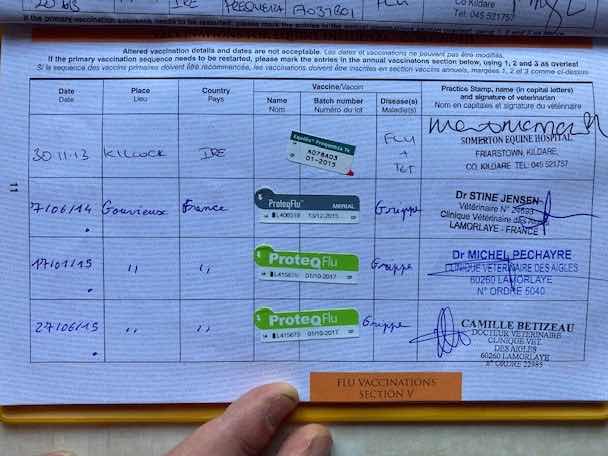 IRE
FLU
Co Kildare
Tel: 045 521757
Altered vaccination details and dates are not acceptable. Les dates et vaccinations ne peuvent pas être modifiés.
If the primary vaccination sequence needs to be restarted, please mark the entries in the annual vaccinatons section below, using 1, 2 and 3 as overleaf
Si la séquence des vaccins primaires doit être recommencée, les vaccinations doivent être inscrites en section vaccins annuels, marquées 1, 2 et 3 comme ci-dessus
Date
Date
Place
Lieu
Country
Pays
Vaccine/Vaccin
Name
Nom
Batch number
Numéro du lot
Disease(s)
Maladie(s)
Practice Stamp, name (in capital letters)
and signature of veterinarian
Nom en capitales et signature du vétérinaire
30 11 13 KILCOCK IRE
A078A03
01-2015
FLU
+
TET
SOMERTON EQUINE HOSPITAL
FRIARSTOWN, KILDARE,
CO. KILDARE TEL: 045 521757
11
7/06/14 Gouvieux France
ProteqFlu MERIAL
L406519 13/12/2015
Grippe
Dr STINE JENSEN
Vétérinaire N° 24693
Clinique Vétérinaire des Aigles
LAMORLAYE - FRANCE
17/01/15 '' ''
ProteqFlu
L415670 01/10/2017
Grippe
Dr MICHEL PECHAYRE
CLINIQUE VETERINAIRE DES AIGLES
60260 LAMORLAYE
N° ORDRE 5040
27/06/15 '' ''
ProteqFlu
L415670 01/10/2017
Grippe
CAMILLE BETIZEAU
DOCTEUR VETERINAIRE
CLINIQUE VET.
DES AIGLES
60260 LAMORLAYE
N° ORDRE 22985
FLU VACCINATIONS
SECTION V